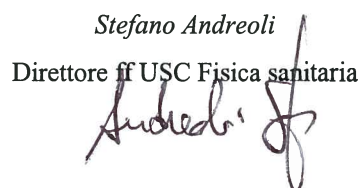 Stefano Andreoli
Direttore ff USC Fisica sanitaria
Andreoli Sf